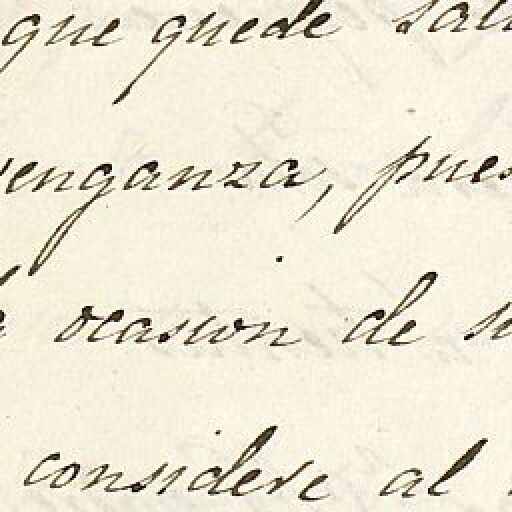 que quede
venganza, pues
ocasion de
considere al